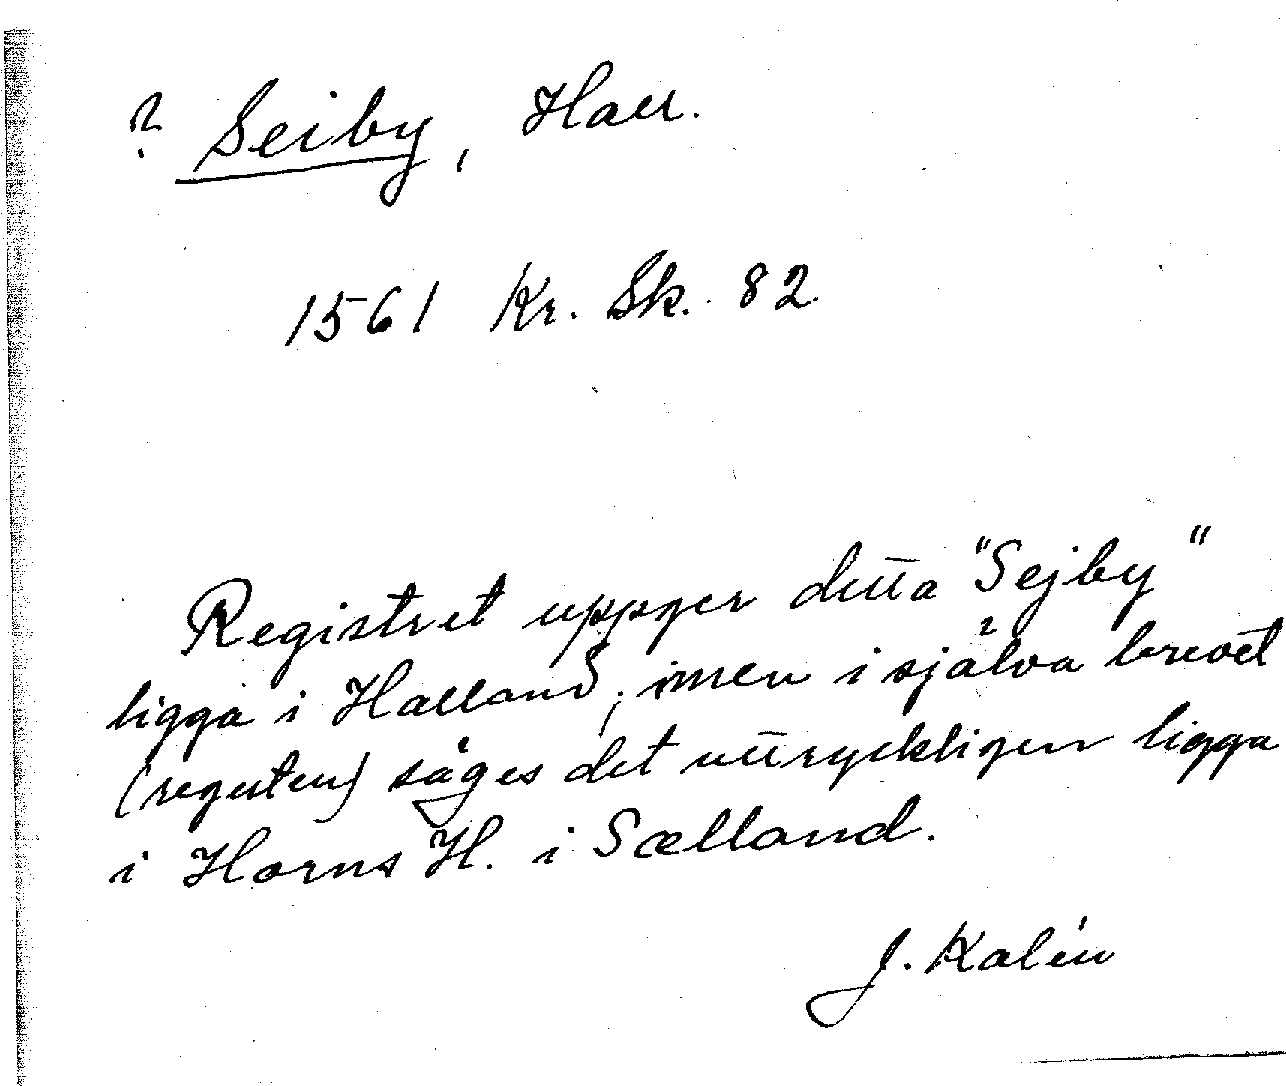 ? Seiby, Hall.
1561 Kr. Sk. 82
Registret uppger detta "Sejby"
ligga i Halland, men i själva brevet
(regesten) säges det uttryckligen ligga
i Horns H. i Sælland.
J. Kalén